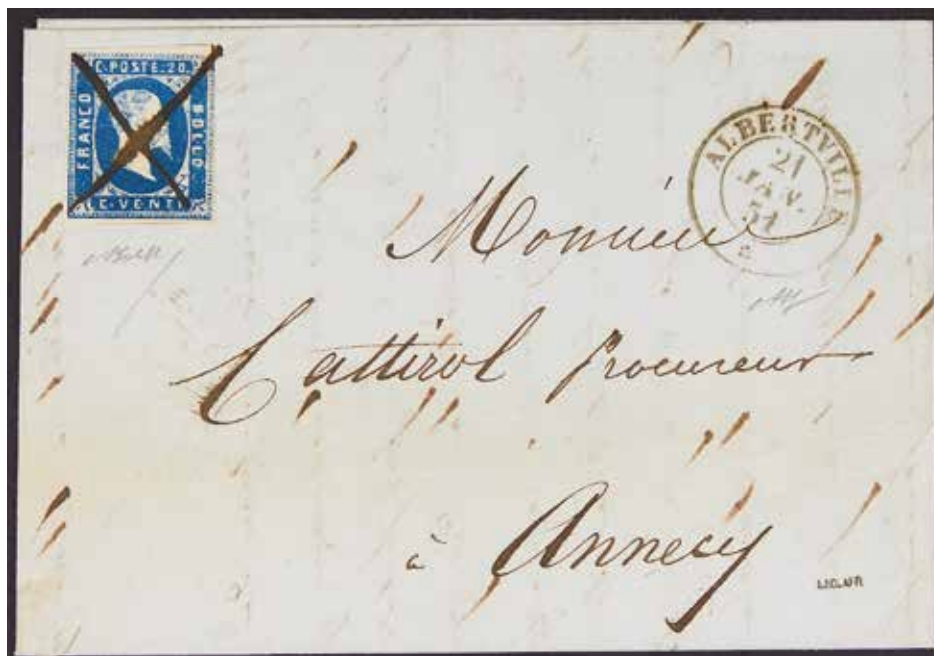 C. POSTE. 20.
FRANCO
BOLLO
C. VENTI
ALBERTVILLE
21
JANV.
51
2
Monsieur
Cattirol procureur
à Annecy